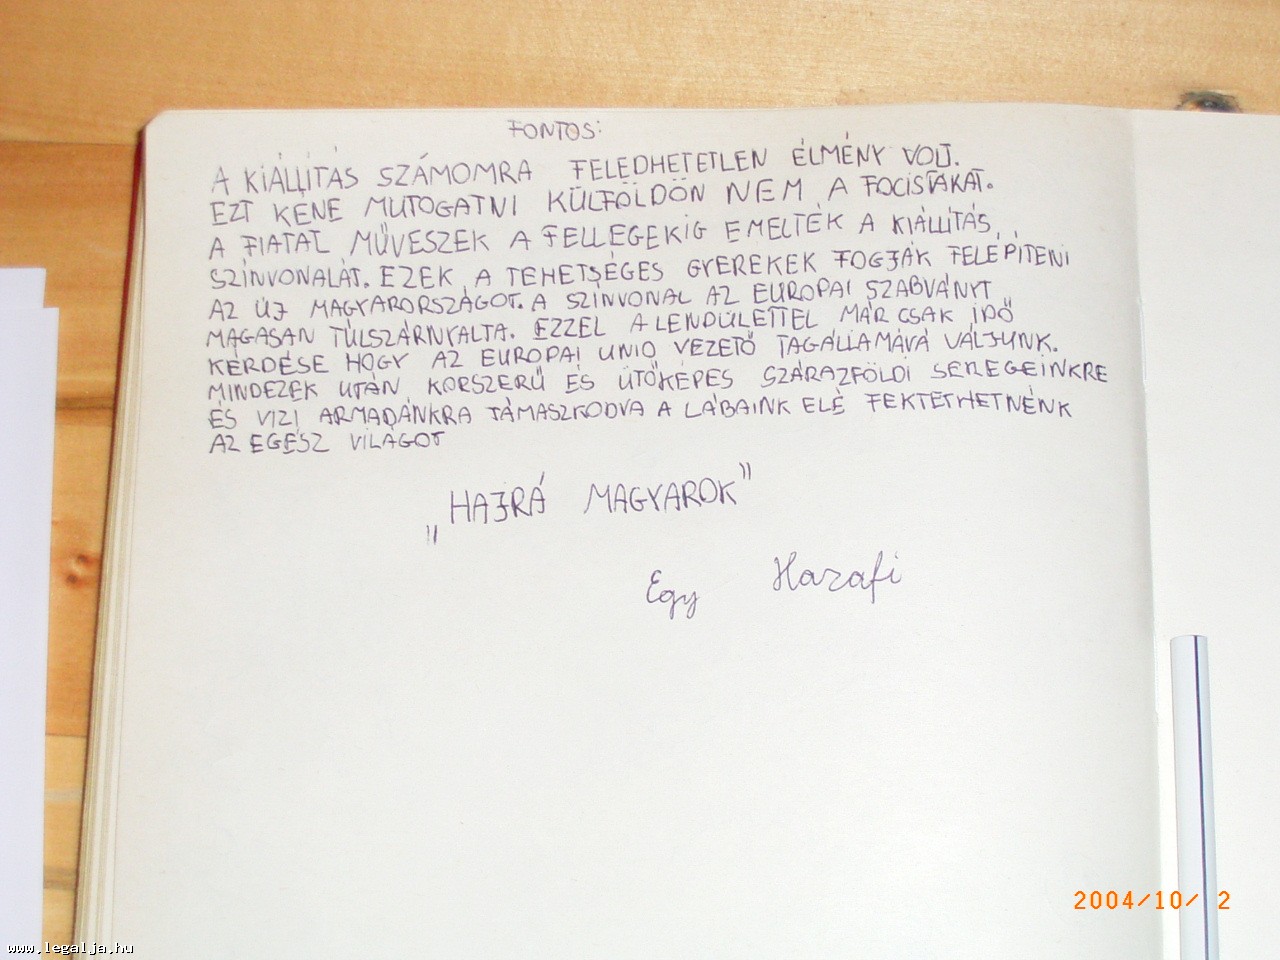 FONTOS:
A KIÁLLÍTÁS SZÁMOMRA FELEDHETETLEN ÉLMÉNY VOLT.
EZT KÉNE MUTOGATNI KÜLFÖLDÖN NEM A FOCISTÁKAT.
A FIATAL MŰVÉSZEK A FELLEGEKIG EMELTÉK A KIÁLLÍTÁS
SZÍNVONALÁT. EZEK A TEHETSÉGES GYEREKEK FOGJÁK FELÉPÍTENI
AZ ÚJ MAGYARORSZÁGOT. A SZÍNVONAL AZ EURÓPAI SZABVÁNYT
MAGASAN TÚLSZÁRNYALTA. EZZEL A LENDÜLETTEL MÁR CSAK IDŐ
KÉRDÉSE HOGY AZ EURÓPAI UNIÓ VEZETŐ TAGÁLLAMÁVÁ VÁLJUNK.
MINDEZEK UTÁN KORSZERŰ ÉS ÜTŐKÉPES SZÁRAZFÖLDI SEREGEINKRE
ÉS VIZI ARMADÁNKRA TÁMASZKODVA A LÁBAINK ELÉ FEKTETHETNÉNK
AZ EGÉSZ VILÁGOT
„HAJRÁ MAGYAROK"
Egy Hazafi
2004/10/ 2
www.legalja.hu